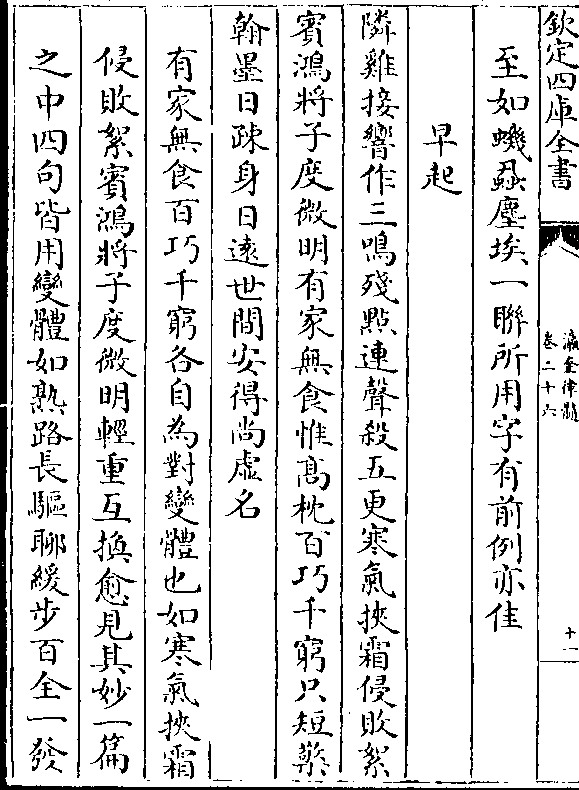 欽定四庫全書
瀛奎律髓
卷二十六
十一
至如蟣蝨塵埃一聯所用字有前例亦佳
早起
隣雞接響作三鳴殘點連聲殺五更寒氣挾霜侵敗絮
賓鴻將子度微明有家無食惟髙枕百巧千窮只短檠
翰墨日疎身日逺世間安得尚虚名
有家無食百巧千窮各自為對變體也如寒氣挾霜
侵敗絮賓鴻將子度微明輕重互換愈見其妙一篇
之中四句皆用變體如熟路長驅聊緩步百全一發